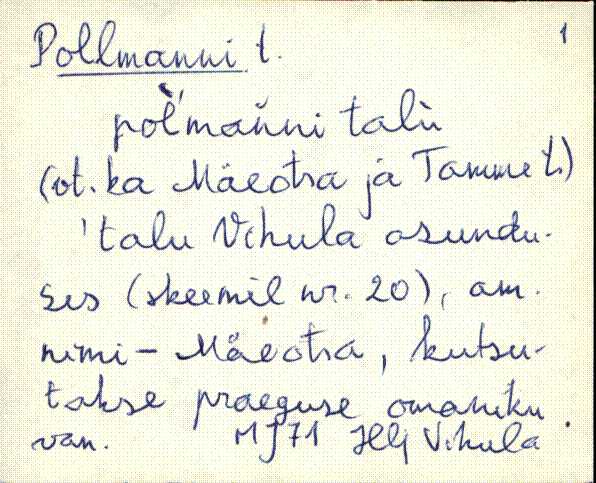 Pollmanni t. 1
pol'mańni talù
(vt. ka Mäeotsa ja Tamme t.)
'talu Vihula asundu-
ses (skeemil nr. 20), am.
nimi – Mäeotsa, kutsu-
takse praeguse omaniku
van. MJ71 Hlj Vihula